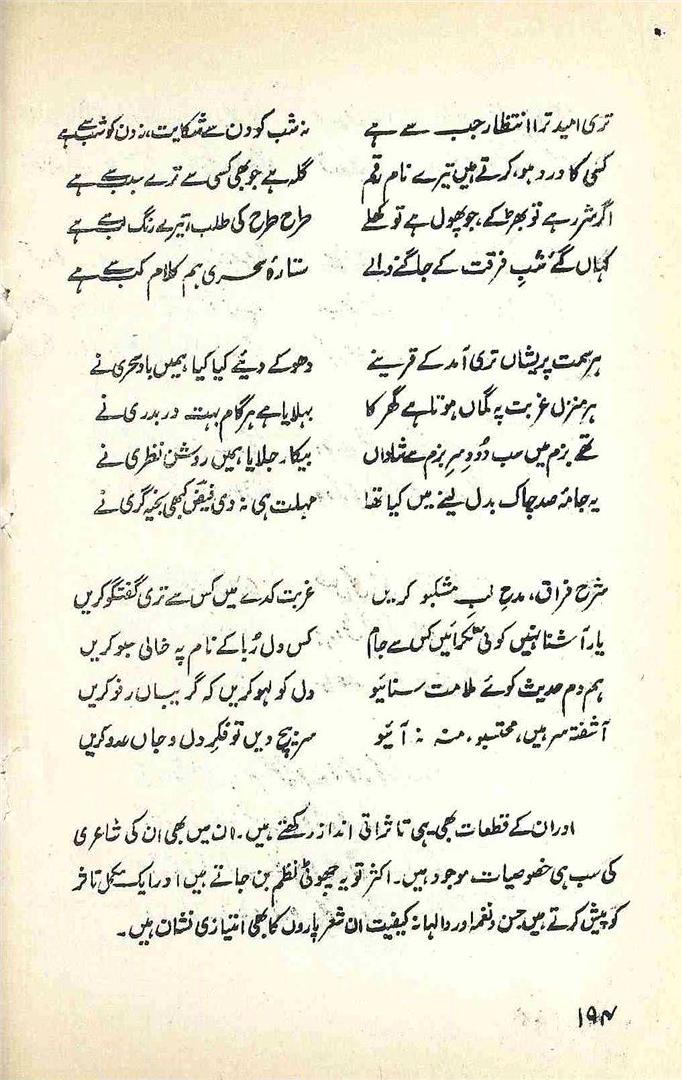 تری امید ترا انتظار جب سے ہے نہ شب کو دن سے شکایت، نہ دن کو شب سے ہے
کسی کا درد ہو، کرتے ہیں تیرے نام رقم گلہ ہے جو بھی کسی سے ترے سبب سے ہے
اگر شرر ہے تو بھڑکے، جو پھول ہے تو کھلے طرح طرح کی طلب، تیرے رنگ لب سے ہے
کہاں گئے شبِ فرقت کے جاگنے والے ستارۂ سحری ہم کلام کب سے ہے
ہر سمت پریشاں تری آمد کے قرینے دھوکے دیئے کیا کیا ہمیں بادِ سحری نے
ہر منزل غربت پہ گماں ہوتا ہے گھر کا بہلایا ہے ہر گام بہت در بدری نے
تھے بزم میں سب دودِ سرِ بزم سے شاداں بیکار جلایا ہمیں روشن نظری نے
یہ جامۂ صد چاک بدل لینے میں کیا تھا مہلت ہی نہ دی فیضؔ کبھی بخیہ گری نے
شرح فراق، مدح لبِ مشکبو کریں غربت کدے میں کس سے تری گفتگو کریں
یار آشنا نہیں کوئی ٹکرائیں کس سے جام کس دل رُبا کے نام پہ خالی سبو کریں
ہم دم حدیث کوئے ملامت سنائیو دل کو لہو کریں کہ گریباں رفو کریں
آشفتہ سر ہیں، محتسبو، منہ نہ آئیو سر بیچ دیں تو فکرِ دل و جاں عدو کریں
اور ان کے قطعات بھی یہی تاثراتی انداز رکھتے ہیں۔ ان میں بھی ان کی شاعری
کی سب ہی خصوصیات موجود ہیں۔ اکثر تو یہ چھوٹی نظم بن جاتے ہیں اور ایک مکمل تاثر
کو پیش کرتے ہیں حسن و نغمہ اور والہانہ کیفیت ان شعر پاروں کا بھی امتیازی نشان ہیں۔
۱۹۴